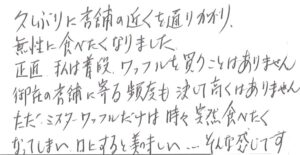 久しぶりに店舗の近くを通りかかり、
無性に食べたくなりました
正直 私は普段、ワッフルを買うことはありません
御社の店舗に寄る頻度も決して高くはありません
ただ、ミスターワッフルだけは時々突然食べたく
なってしまい 口にすると美味しい…そんな感じです